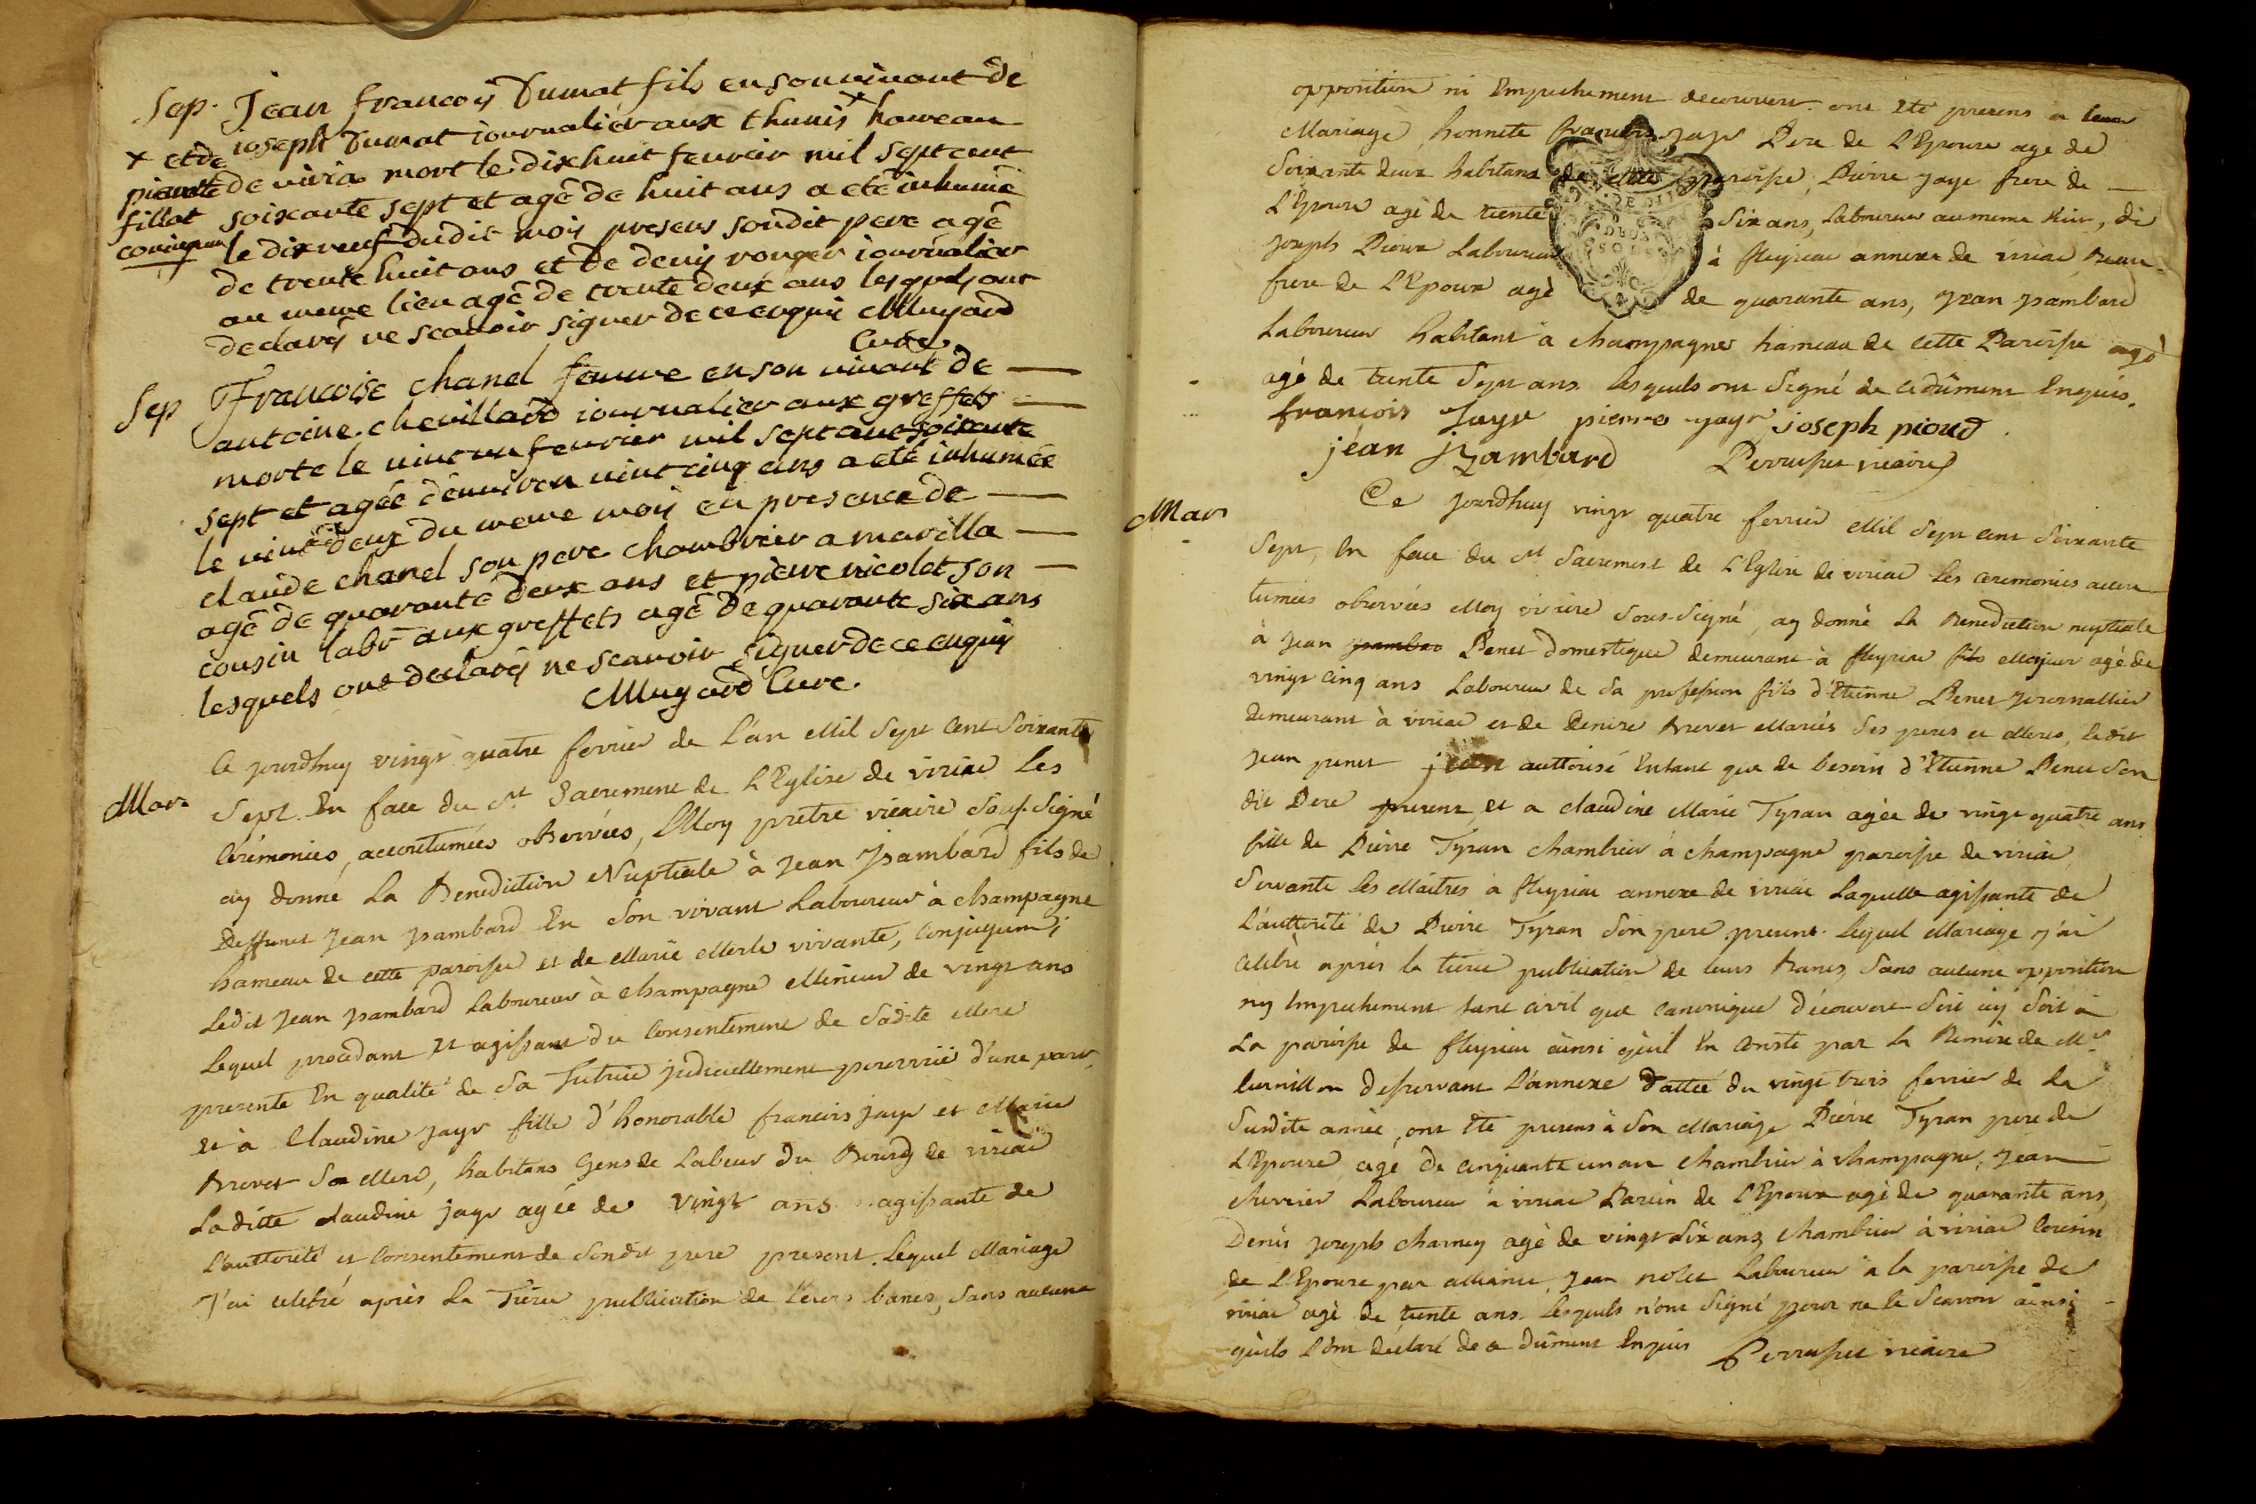 Sep. Jean francois Dumat fils en son vivant de
ioseph Dumat iournalier aux thuais x hameau
x et de pierrette fillot coniugaux
de viria mort le dix huit feuvrier mil sept cent
soixante sept et agé de huit ans a eté inhumé
le dix neuf dudit mois presens sondit pere agé
de trente huit ans et de denis ronger iournalier
au meme lieu agé de trente deux ans lesquels ont
declarés ne scavoir signer de ce enquis Muyard
Curé
Sep Francoise chanel femme en son vivant de
antoine chevillard iournalier aux greffets
morte le vint un feuvrier mil sept cent soixante
sept et agée d'environ vint cinq ans a eté inhumée
le vint deux du meme mois en presence de
claude chanel son pere chambrier a marilla
agé de quarante deux ans et pierre nicolet son
cousin labr aux greffets agé de quarante six ans
lesquels ont declarés ne scavoir signer de ce enquis
Muyard Curé.
Mar.
Ce jourdhuy vingt quatre fevrier de L'an Mil Sept Cent Soixante
Sept. En face du St Sacrement de L'Eglise de viriac Les
Cérémonies accoutumées observées, Moy prêtre vicaire Sous. Signé
ay donné La Benediction Nuptiale à Jean Jsambard fils de
Deffunct Jean Jsambard En Son vivant Laboureur à Champagne
hameau de cette paroisse et de Marie Merle vivante, Conjugum;
Ledit Jean Jsambard Laboureur à Champagne Mineur de vingt ans
Lequel procedant Et agissant du Consentement de Sadite Mere
presente En qualité de Sa Tutrice judiciellement pourvuë d'une part,
et à Claudine jayr fille d'honorable francois jayr et Marie
Brevet Sa Mere, habitans Gens de Labeur du Bourg de viriac
Laditte claudine jayr agée de vingt ans agissante de
L'auttorité et Consentement de Sondit pere present. Lequel Mariage
J'ai celebré après La Tierce publication de Leurs bancs, Sans aucune
opposition ni Empechement decouvert. ont eté presens a leur
Mariage, honnete francois jayr Pere de L'Epouse agé de
Soixante deux habitans de cette paroisse, Pierre jayr frere de
L'Epouse agé de trente Six ans, Laboureur au meme lieu, de
joseph Pioux Laboureur à fleyriac annexe de viriac, Beau-
frere de L'Epoux agé de quarante ans, Jean jsambard
Laboureur habitant à champagne hameau de cette Paroisse agé
agé de trente Sept ans Lesquels ont Signé de ce dûment Enquis.
francois Jayr pierre jayr joseph pioud
jéan jzambard Perrusset vicaire
Mar.
Ce jourdhuy vingt quatre fevrier Mil Sept cent Soixante
Sept, En face du St Sacrement de L'Eglise de viriac Les ceremonies accou
tumées observées Moy vicaire Sous-Signé, ay donné La Benediction nuptiale
à Jean Benet domestique demeurant à fleyriac fils Majeur agé de
vingt cinq ans Laboureur de Sa profession fils d'Etienne Benet journallier
demeurant à viriac et de Denise Brevet Mariés Ses peres et Meres, Ledit
Jean penet auttorisé Entant que de besoin d'Etienne Benet Son
dit Pere present, et a claudine Marie Tyran agée de vingt quatre ans
fille de Pierre Tyran chambrier à champagne paroisse de viriac
Servante Les Maîtres a fleyriac annexe de viriac Laquelle agissante de
L'auttorité de Pierre Tyran Son pere present. Lequel Mariage j'ai
Celebré après la tierce publication de leurs bancs, Sans aucune opposition
ny Empechement tant civil que canonique découvert Soit icy Soit à
La paroisse de fleyriac ainsi qu'il En Conste par la Remise de Mr
desservant L'annexe dattée du vingt trois fevrier de La
Susdite année, ont été presens à Son Mariage Pierre Tyran pere de
L'Epouse agé de Cinquante un an chambrier à champagne, Jean
chevrier Laboureur à viriac Parein de L'Epoux agé de quarante ans,
Denis joseph charney agé de vingt Six ans, chambrier à viriac Cousin
de L'Epouse par alliance, Jean nolet Laboureur à la paroisse de
viriac agé de trente ans. Lesquels n'ont Signé pour ne le Scavoir ainsi
qu'ils L'ont déclaré de ce dûment Enquis Perrusset vicaire